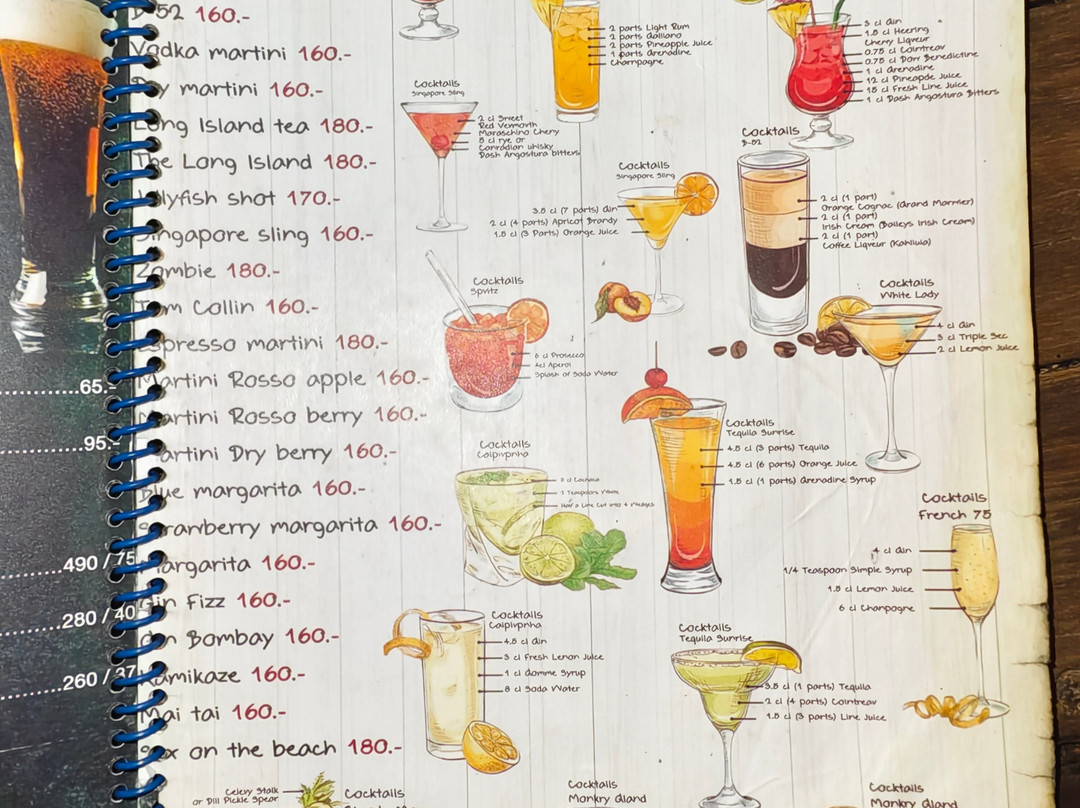 52 160.-
Vodka martini 160.-
martini 160.-
Long Island tea 180.-
The Long Island 180.-
shot 170.-
sling 160.-
Zombie 180.-
Tom Collin 160.-
martini 180.-
Martini Rosso apple 160.-
Martini Rosso berry 160.-
Martini Dry berry 160.-
Blue margarita 160.-
margarita 160.-
margarita 160.-
Gin Fizz 160.-
Bombay 160.-
Kamikaze 160.-
Mai tai 160.-
on the beach 180.-
65.-
95.-
490 / 75
280 / 40
260 / 37
2 parts Light Rum
2 parts Galliano
2 parts Pineapple Juice
1 parts Grenadine
Champagne
3 cl Gin
1.5 cl Heering
Cherry Liqueur
0.75 cl Cointreau
0.75 cl Dom Benedictine
1 cl Grenadine
12 cl Pineapple Juice
1.5 cl Fresh Lime Juice
1 cl Dash Angostura Bitters
Cocktails
Singapore Sling
2 cl Sweet
Red Vermouth
Maraschino Chery
5 cl rye or
Canradian whisky
Dash Angostura bitters
Cocktails
B-52
2 cl (1 part)
Orange Cognac (Grand Marnier)
2 cl (1 part)
Irish Cream (Baileys Irish Cream)
2 cl (1 part)
Coffee Liqueur (Kahlua)
Cocktails
Singapore Sling
3.5 cl (7 parts) Gin
2 cl (4 parts) Apricot Brandy
1.5 cl (3 Parts) Orange Juice
Cocktails
Spvitz
6 cl Prosecco
4cl Aperol
Splash of Soda Water
Cocktails
White Lady
4 cl Gin
3 cl Triple Sec
2 cl Lemon Juice
Cocktails
Tequila Sunrise
4.5 cl (3 parts) Tequila
4.5 cl (6 parts) Orange Juice
1.5 cl (1 parts) Grenadine Syrup
Cocktails
Caipivprnha
Half a Lime Cut into 4 Wedges
Cocktails
French 75
4 cl Gin
1/4 Teaspoon Simple Syrup
1.5 cl Lemon Juice
6 cl Chanpogne
Cocktails
Caipivprnha
4.5 cl Gin
3 cl Fresh Lenon Juice
1 cl Gomme Syrup
8 cl Soda Water
Cocktails
Tequila Sunrise
3.5 cl (1 parts) Tequila
2 cl (4 parts) Cointreau
1.5 cl (3 parts) Line Juice
Celery Stalk
or Dill Pickle Spear
Cocktails
Cocktails
Monkry Gland
Cocktails
Monkry Gland